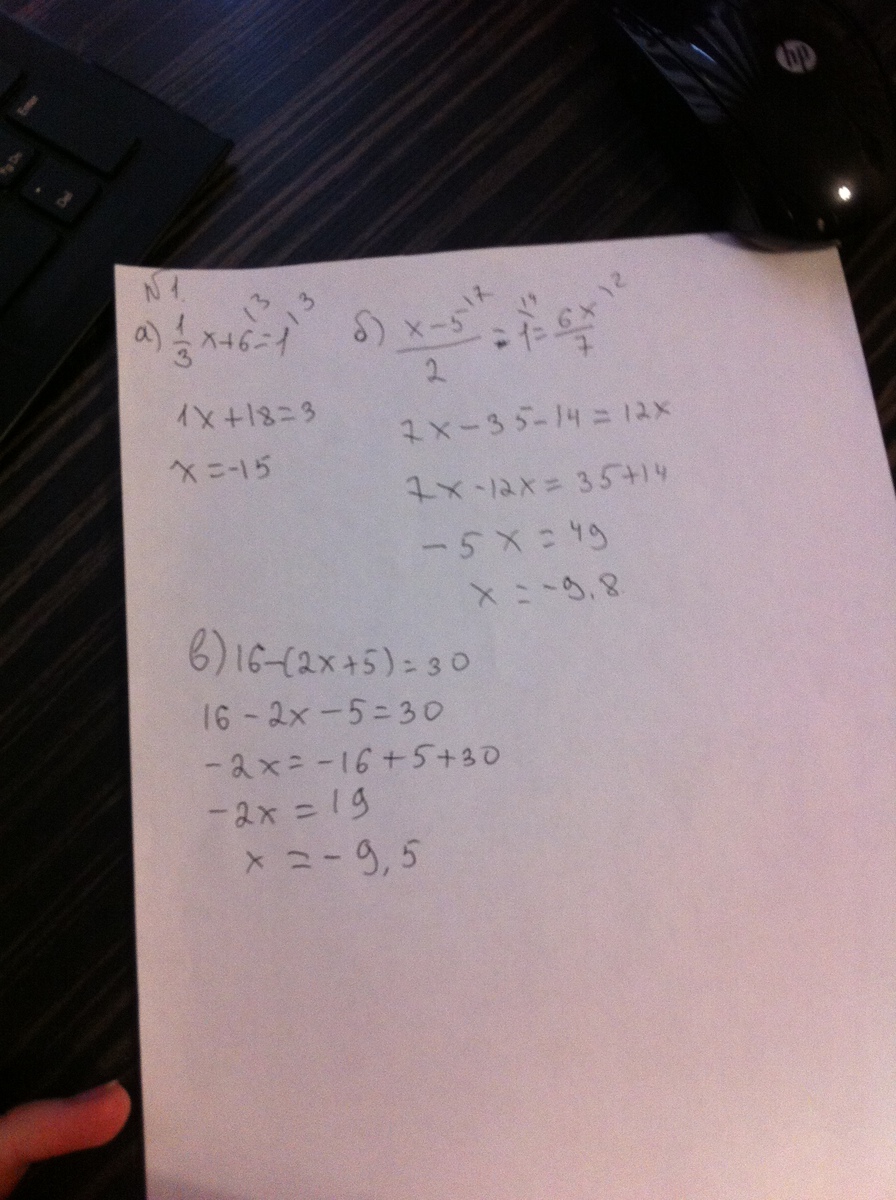 №1.
а) 1/3 x+6=1 \3 \3
1x+18=3
x=-15
б) x-5/2 = 1 = 6x/7 \7 \14 \2
7x-35-14=12x
7x-12x=35+14
-5x=49
x=-9,8
в) 16-(2x+5)=30
16-2x-5=30
-2x=-16+5+30
-2x=19
x=-9,5
hp
Enter
Del